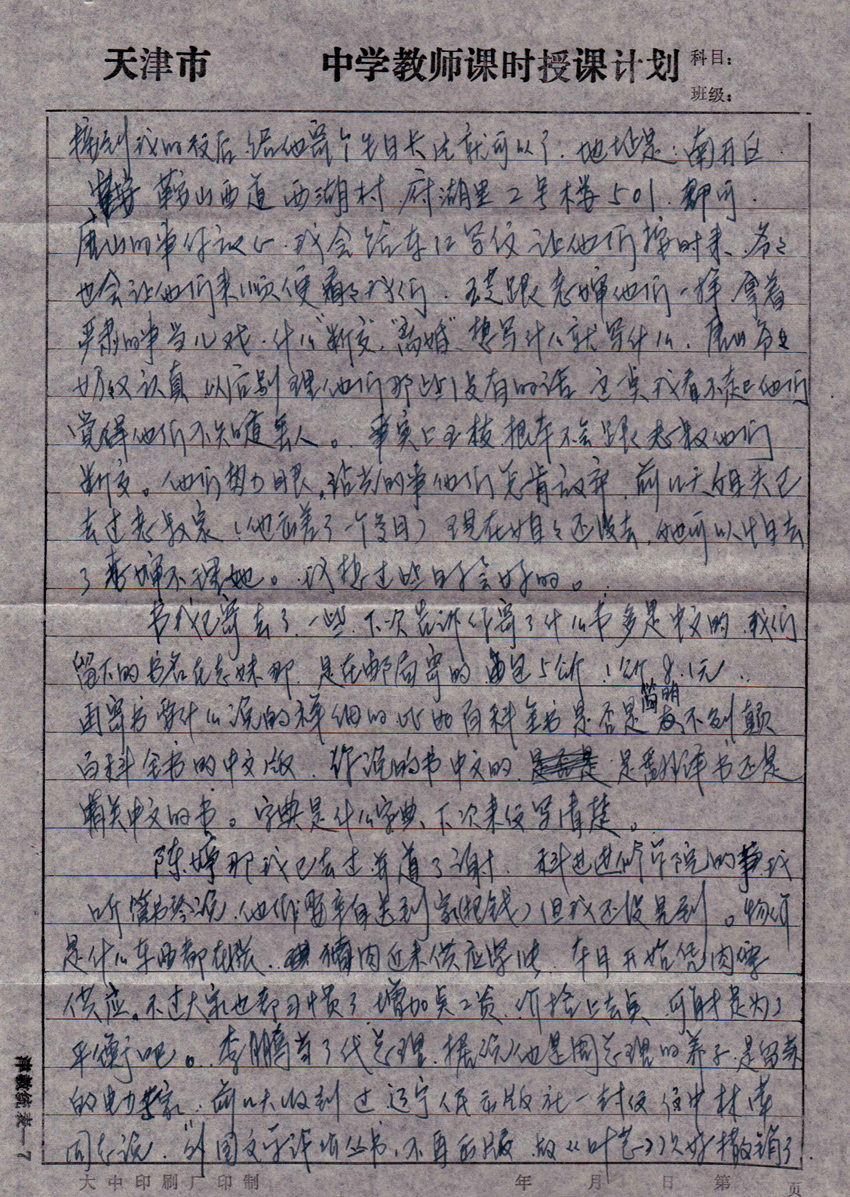 天津市 中学教师课时授课计划 科目:
班级:
接到我的校后,给他寄个生日卡片就可以了.地址是:南开区
鞍山西道西湖村 府湖里2号楼501.都可.
唐山的事你放心.我会给东江写信让他们按时来、爷爷
也会让他们来顺便看看我们.跟老婶他们一样拿着
严肃的事当儿戏.什么"断交""离婚"想写什么就写什么.唐山爷爷
奶奶认真 以后别理他们那些没有的话 这点我看不起他们
觉得他们不知道丢人。 事实上玉枝根本不会跟老叔他们
断交。他们势力眼。站前的事他们怎肯放弃.前几天姐夫已
去过老叔家(他出差了一个多月)现在姐姐还没去.她可以出去
了老婶不理她。我想过些日子会好的。
书我已寄去了一些.下次告诉你寄了什么书多是中文的.我们
留下的书名在老妹那.是在邮局寄的 每包5公斤 1公斤8.1元..
再寄书要什么说的祥细的 比如百科全书是否是简明不列颠
百科全书的中文版.你说的书中文的 是翻译书还是
有关中文的书。字典是什么字典、下次来信写清楚。
陈婷那我已去过并道了谢.科进进修学院的事我
听说.他们暂送到家(把钱)但我还没见到。物价
是什么东西都在涨.猪肉近来供应紧张.本月开始凭肉票
供应。不过大家也都习惯了 增加点工资.价格上去点 可能才是为了
平衡吧。李鹏当了代总理.据说他是周总理的养子.是留苏
的电力专家.前几天收到过辽宁人民出版社一封信 信中林
同志说."外国文学评论丛书"不再出版 故《叶芝》只好撤销了
津教统表—7
大中印刷厂印制 年 月 日 第 页